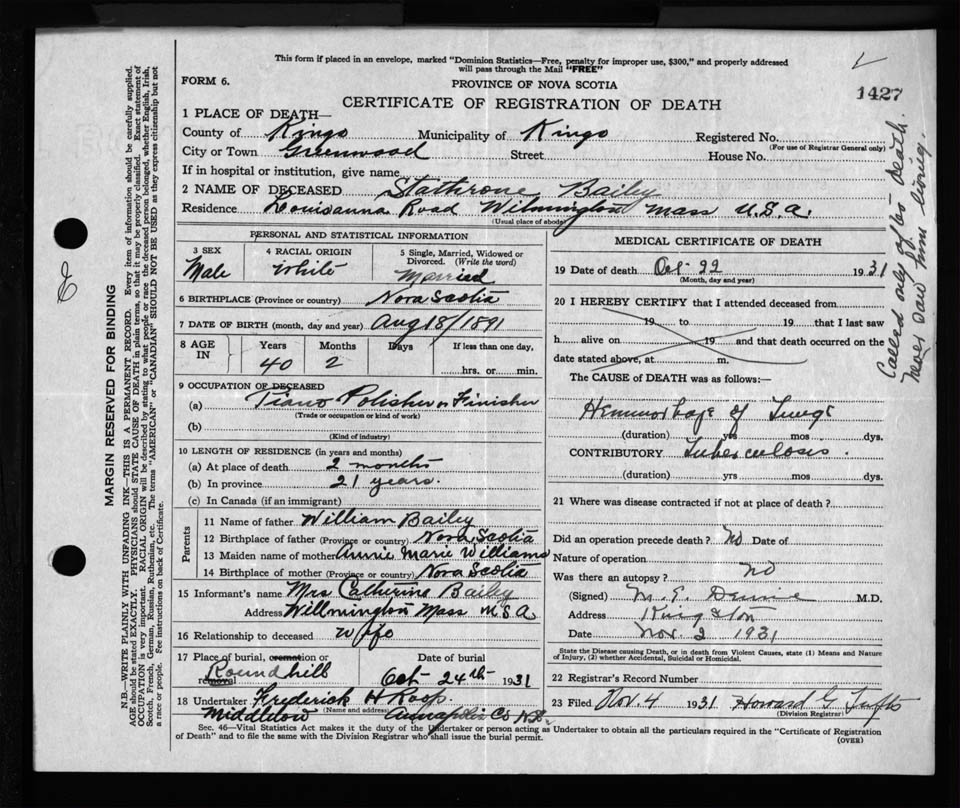 This form if placed in an envelope, marked "Dominion Statistics—Free, penalty for improper use, $300," and properly addressed
will pass through the Mail "FREE"
FORM 6.
PROVINCE OF NOVA SCOTIA
1427
CERTIFICATE OF REGISTRATION OF DEATH
1 PLACE OF DEATH—
County of Kings Municipality of Kings Registered No.
(For use of Registrar General only)
City or Town Greenwood Street House No.
If in hospital or institution, give name
2 NAME OF DECEASED Stathrone Bailey
Residence Louisanna Road Wilmington Mass U.S.A.
(Usual place of abode)
PERSONAL AND STATISTICAL INFORMATION
3 SEX
Male
4 RACIAL ORIGIN
White
5 Single, Married, Widowed or
Divorced. (Write the word)
Married
6 BIRTHPLACE (Province or country) Nova Scotia
7 DATE OF BIRTH (month, day and year) Aug 18/1891
8 AGE
IN
Years Months Days If less than one day,
40 2
hrs. or min.
9 OCCUPATION OF DECEASED
(a) Piano Polisher or Finisher
(Trade or occupation or kind of work)
(b)
(Kind of industry)
10 LENGTH OF RESIDENCE (in years and months)
(a) At place of death 2 months
(b) In province 21 years.
(c) In Canada (if an immigrant)
Parents
11 Name of father William Bailey
12 Birthplace of father (Province or country) Nova Scotia
13 Maiden name of mother Annie Marie Williams
14 Birthplace of mother (Province or country) Nova Scotia
15 Informant's name Mrs Catherine Bailey
Address Willmington Mass U.S.A
16 Relationship to deceased wife
17 Place of burial, cremation or
removal Roundhill
Date of burial
Oct 24th 1931
18 Undertaker Frederick H Roop
(Name and address)
Middleton Annapolis Co N.S.
MEDICAL CERTIFICATE OF DEATH
19 Date of death Oct 22 1931
(Month, day and year)
20 I HEREBY CERTIFY that I attended deceased from
19 to 19 that I last saw
h alive on 19 and that death occurred on the
date stated above, at m.
The CAUSE of DEATH was as follows:—
Hemmorhage of Lungs
(duration) yrs mos dys.
CONTRIBUTORY Tuberculosis.
(duration) yrs mos dys.
21 Where was disease contracted if not at place of death?
Did an operation precede death? No Date of
Nature of operation
Was there an autopsy? No
(Signed) M.E. M.D.
Address Kingston
Date Nov. 2 1931
State the Disease causing Death, or in death from Violent Causes, state (1) Means and Nature
of Injury, (2) whether Accidental, Suicidal or Homicidal.
22 Registrar's Record Number
23 Filed Nov. 4 1931 Howard G Tufts
(Division Registrar)
Sec. 46—Vital Statistics Act makes it the duty of the Undertaker or person acting as Undertaker to obtain all the particulars required in the "Certificate of Registration
of Death" and to file the same with the Division Registrar who shall issue the burial permit.
(OVER)
Called only after death.
Never saw him living.
MARGIN RESERVED FOR BINDING
N.B.—WRITE PLAINLY WITH UNFADING INK—THIS IS A PERMANENT RECORD. Every item of information should be carefully supplied.
AGE should be stated EXACTLY. PHYSICIANS should STATE CAUSE OF DEATH in plain terms, so that it may be properly classified. Exact statement of
OCCUPATION is very important. RACIAL ORIGIN will be described by stating to what people or race the deceased person belonged, whether English, Irish,
Scotch, French, German, Russian, Ruthenian, etc. The terms "AMERICAN" or "CANADIAN" SHOULD NOT BE USED as they express citizenship but not
a race or people. Fee instructions on back of Certificate.